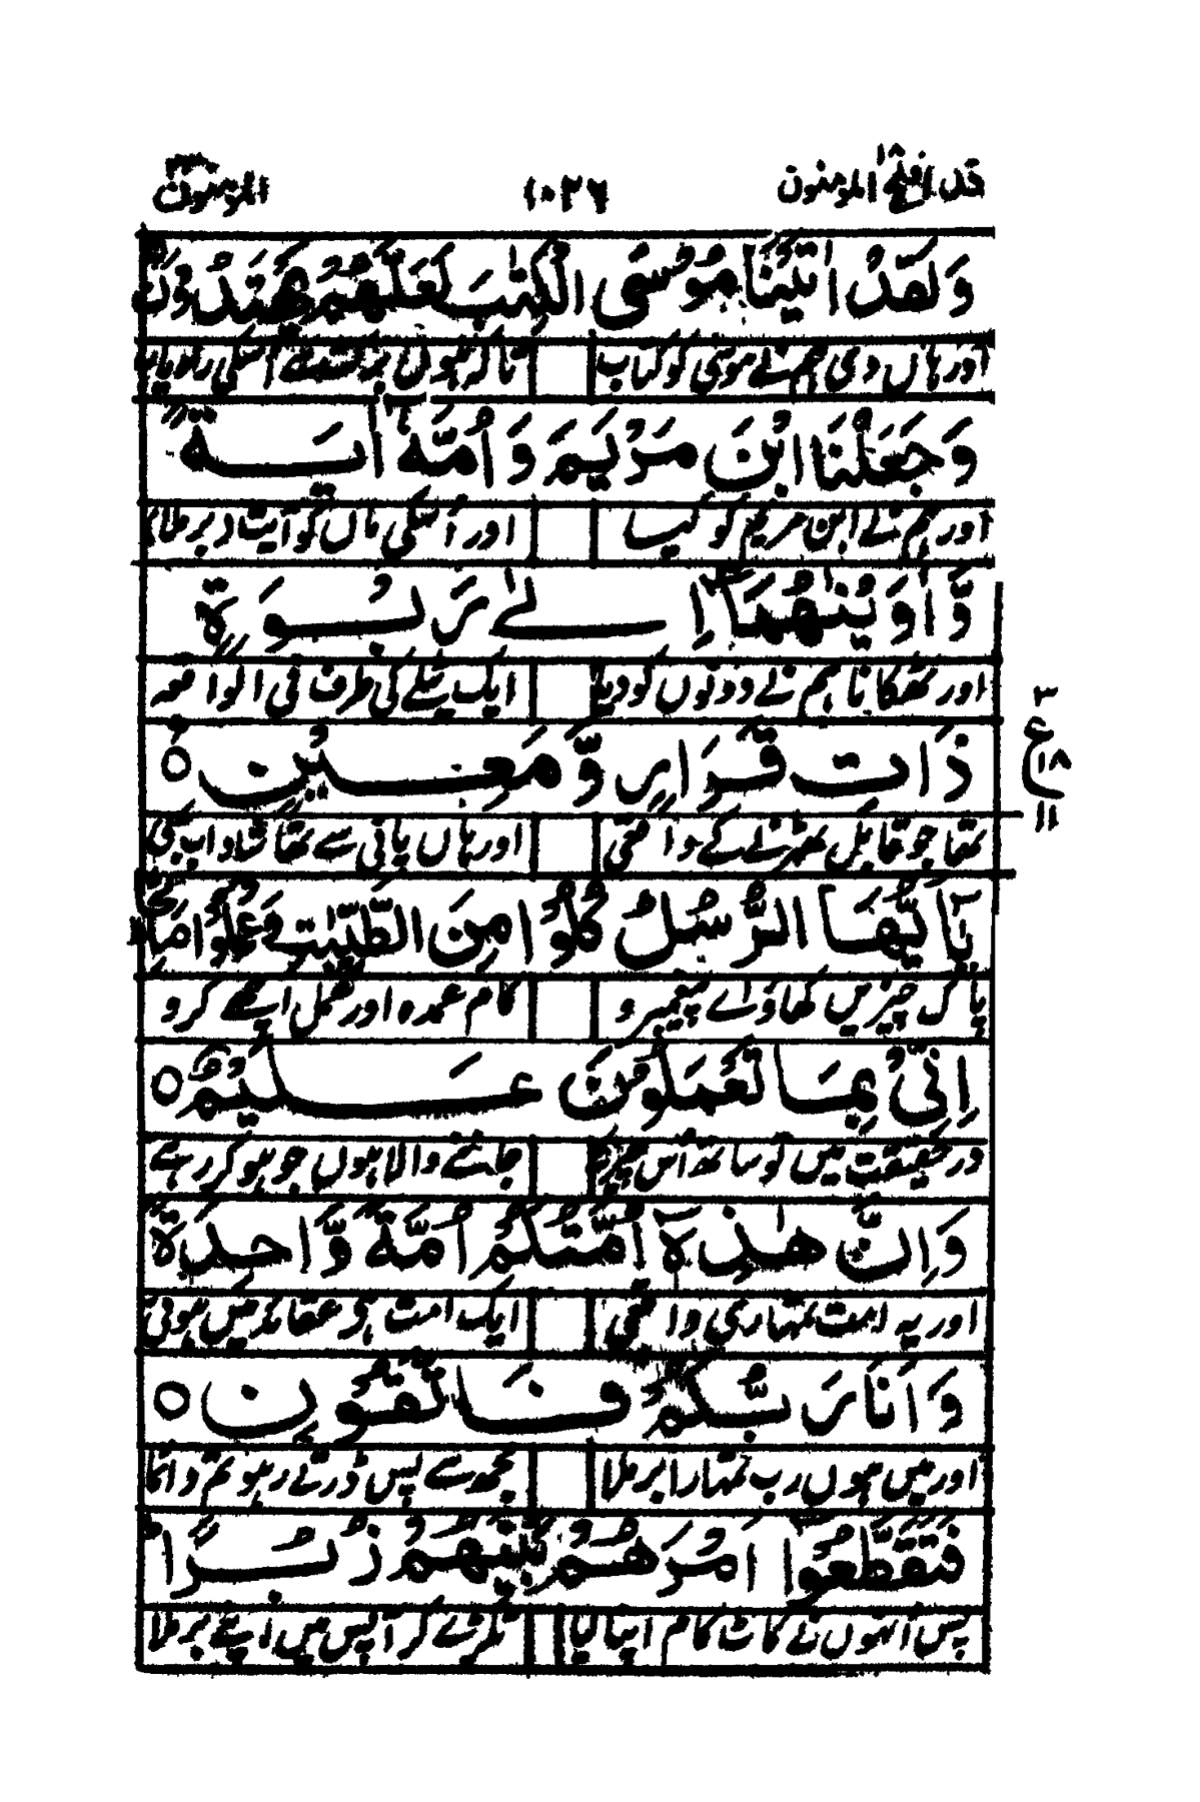 قد افلح ١٨ المؤمنون ١٠٢٦ المؤمنون ٢٣
وَلَقَدْ اٰتَيْنَا مُوْسَى الْكِتٰبَ لَعَلَّهُمْ يَهْتَدُوْنَ
اور ہاں دی ہم نے موسی کو کتاب تاکہ ہوں برگشتے اسکی راہ یاب
وَجَعَلْنَا ابْنَ مَرْيَمَ وَاُمَّهٗٓ اٰيَةً
اور ہم نے ابن مریم کو کیا اور اسکی ماں کو آیت برملا
وَّاٰوَيْنٰهُمَآ اِلٰى رَبْوَةٍ
اور ٹھکانا ہم نے دونوں کو دیا ایک ٹیلے کی طرف فی الواقعہ
ذَاتِ قَرَارٍ وَّمَعِيْنٍ ○
تھا جو قابل ٹھرنے کے واقعی اور ہاں پانی سے تھا شاداب بھی
٣ ع ١٨ ١١
يٰٓاَيُّهَا الرُّسُلُ كُلُوْا مِنَ الطَّيِّبٰتِ وَاعْمَلُوْا صَالِحًا
پاک چیزیں کھاؤ اے پیغمبرو کام عمدہ اور عمل اچھے کرو
اِنِّيْ بِمَا تَعْمَلُوْنَ عَلِيْمٌ ○
در حقیقت میں کو ساتھ اس چیز کے جاننے والا ہوں جو ہو کر رہے
وَاِنَّ هٰذِهٖٓ اُمَّتُكُمْ اُمَّةً وَّاحِدَةً
اور یہ امت تمہاری واقعی ایک امت ہی عقائد میں ہوئی
وَاَنَا رَبُّكُمْ فَاتَّقُوْنِ ○
اور میں ہوں رب تمہارا برملا مجھ سے پس ڈرتے رہو تم دائما
فَتَقَطَّعُوْٓا اَمْرَهُمْ بَيْنَهُمْ زُبُرًا
پس انہوں نے کاٹ کام اپنا لیا ٹکڑے کر آپس میں اپنے برملا